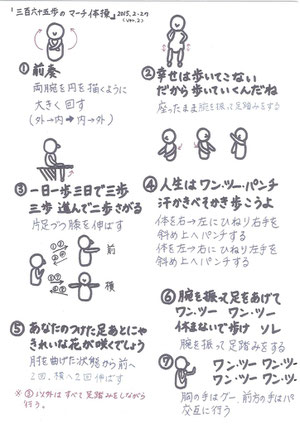 「三百六十五歩のマーチ体操」 2015.2.27
(ver.2)
①前奏
両腕を円を描くように
大きく回す
(外→内➡内→外)
②幸せは歩いてこない
だから歩いていくんだね
座ったまま腕を振って足踏みをする
③一日一歩三日で三歩
三歩進んで二歩さがる
片足づつ膝を伸ばす
④人生はワン・ツー・パンチ
汗かきべそかき歩こうよ
体を右→左にひねり右手を
斜め上へパンチする
体を左→右にひねり左手を
斜め上へパンチする
前
横
⑤あなたのつけた足あとにゃ
きれいな花が咲くでしょう
肘を曲げた状態から前へ
2回、横へ2回伸ばす
※③以外はすべて足踏みをしながら
行う。
⑥腕を振って足をあげて
ワン・ツー ワン・ツー
休まないで歩け ソレ
腕を振って足踏みをする
⑦ワン・ツー ワン・ツー
ワン・ツー ワン・ツー
胸の手はグー、前方の手はパー
交互に行う